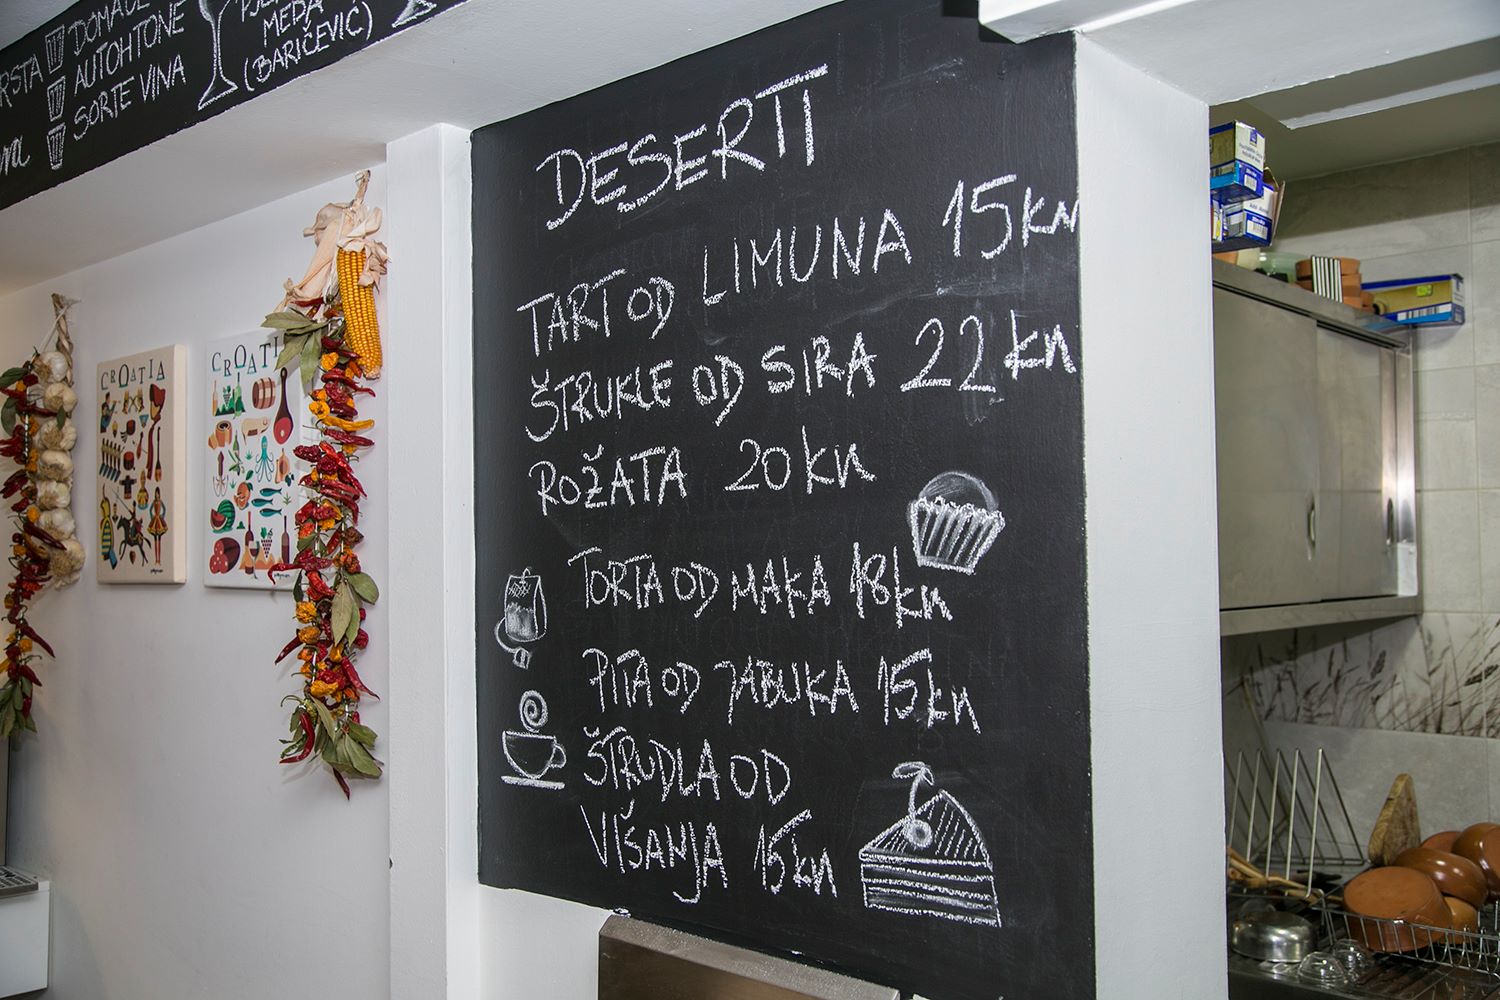 DOMAĆE
AUTOHTONE
SORTE VINA
MEDA
(BARIČEVIĆ)
CROATIA
CROATI
DESERTI
TART OD LIMUNA 15kn
ŠTRUKLE OD SIRA 22 kn
ROŽATA 20 kn
TORTA OD MAKA 18kn
PITA OD JABUKA 15kn
ŠTRUDLA OD
VIŠANJA 15kn